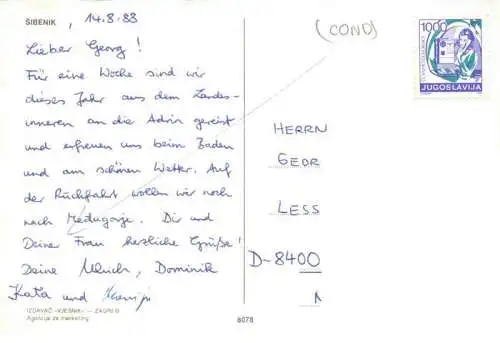 ŠIBENIK, 14.8.88
Lieber Georg!
Für eine Woche sind wir
dieses Jahr aus dem Landes-
inneren an die Adria gereist
und erfreuen uns beim Baden
und am schönen Wetter. Auf
der Rückfahrt wollen wir noch
nach Medugorje. Dir und
Deiner Frau herzliche Grüße!
Deine Ulrich, Dominik
Kata und
IZDAVAČ «VJESNIK» — ZAGREB
Agencija za marketing
8078
(COND)
1000
JUGOSLAVIJA
HERRN
GEOR
LESS
D-8400